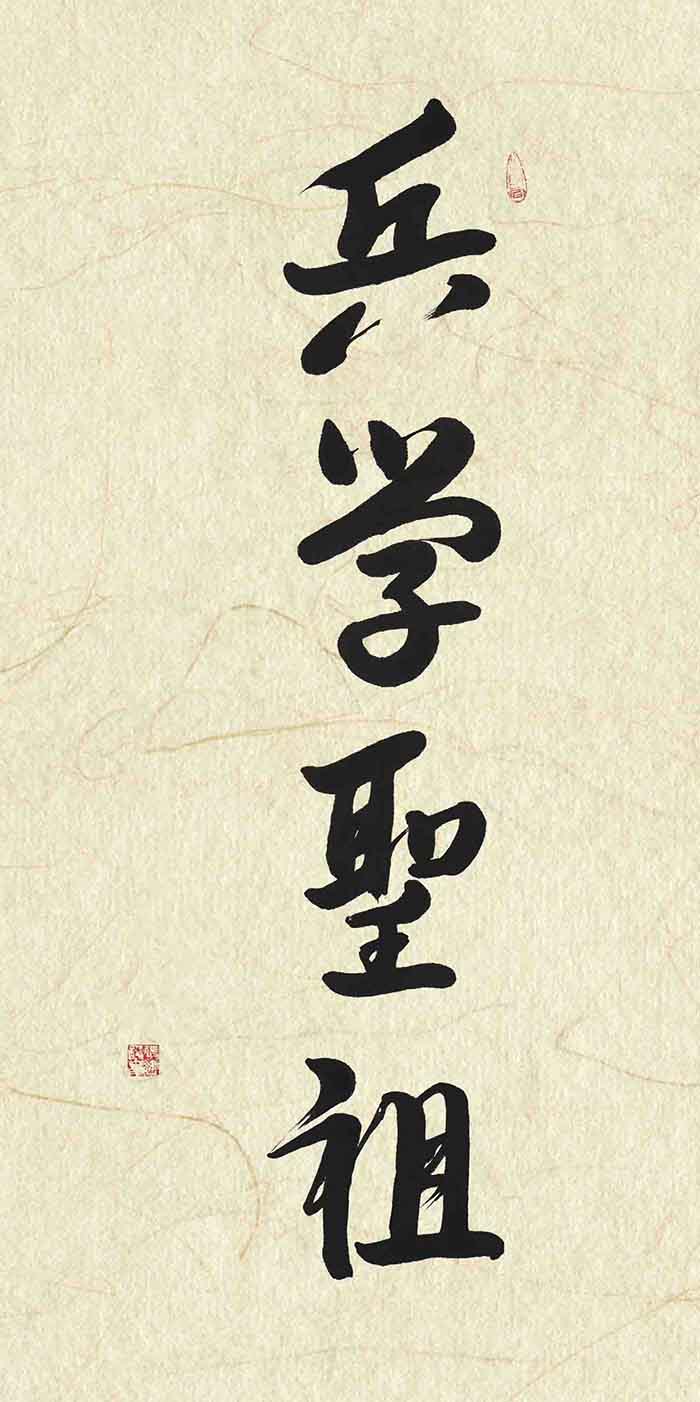 兵学聖祖